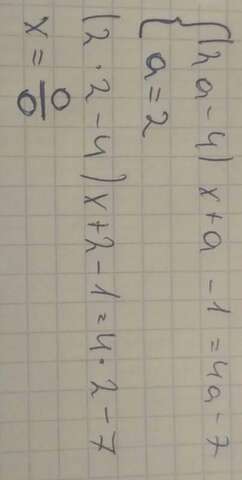 {(2a-4)x+a-1=4a-7
a=2
(2·2-4)x+2-1=4·2-7
x=0/0